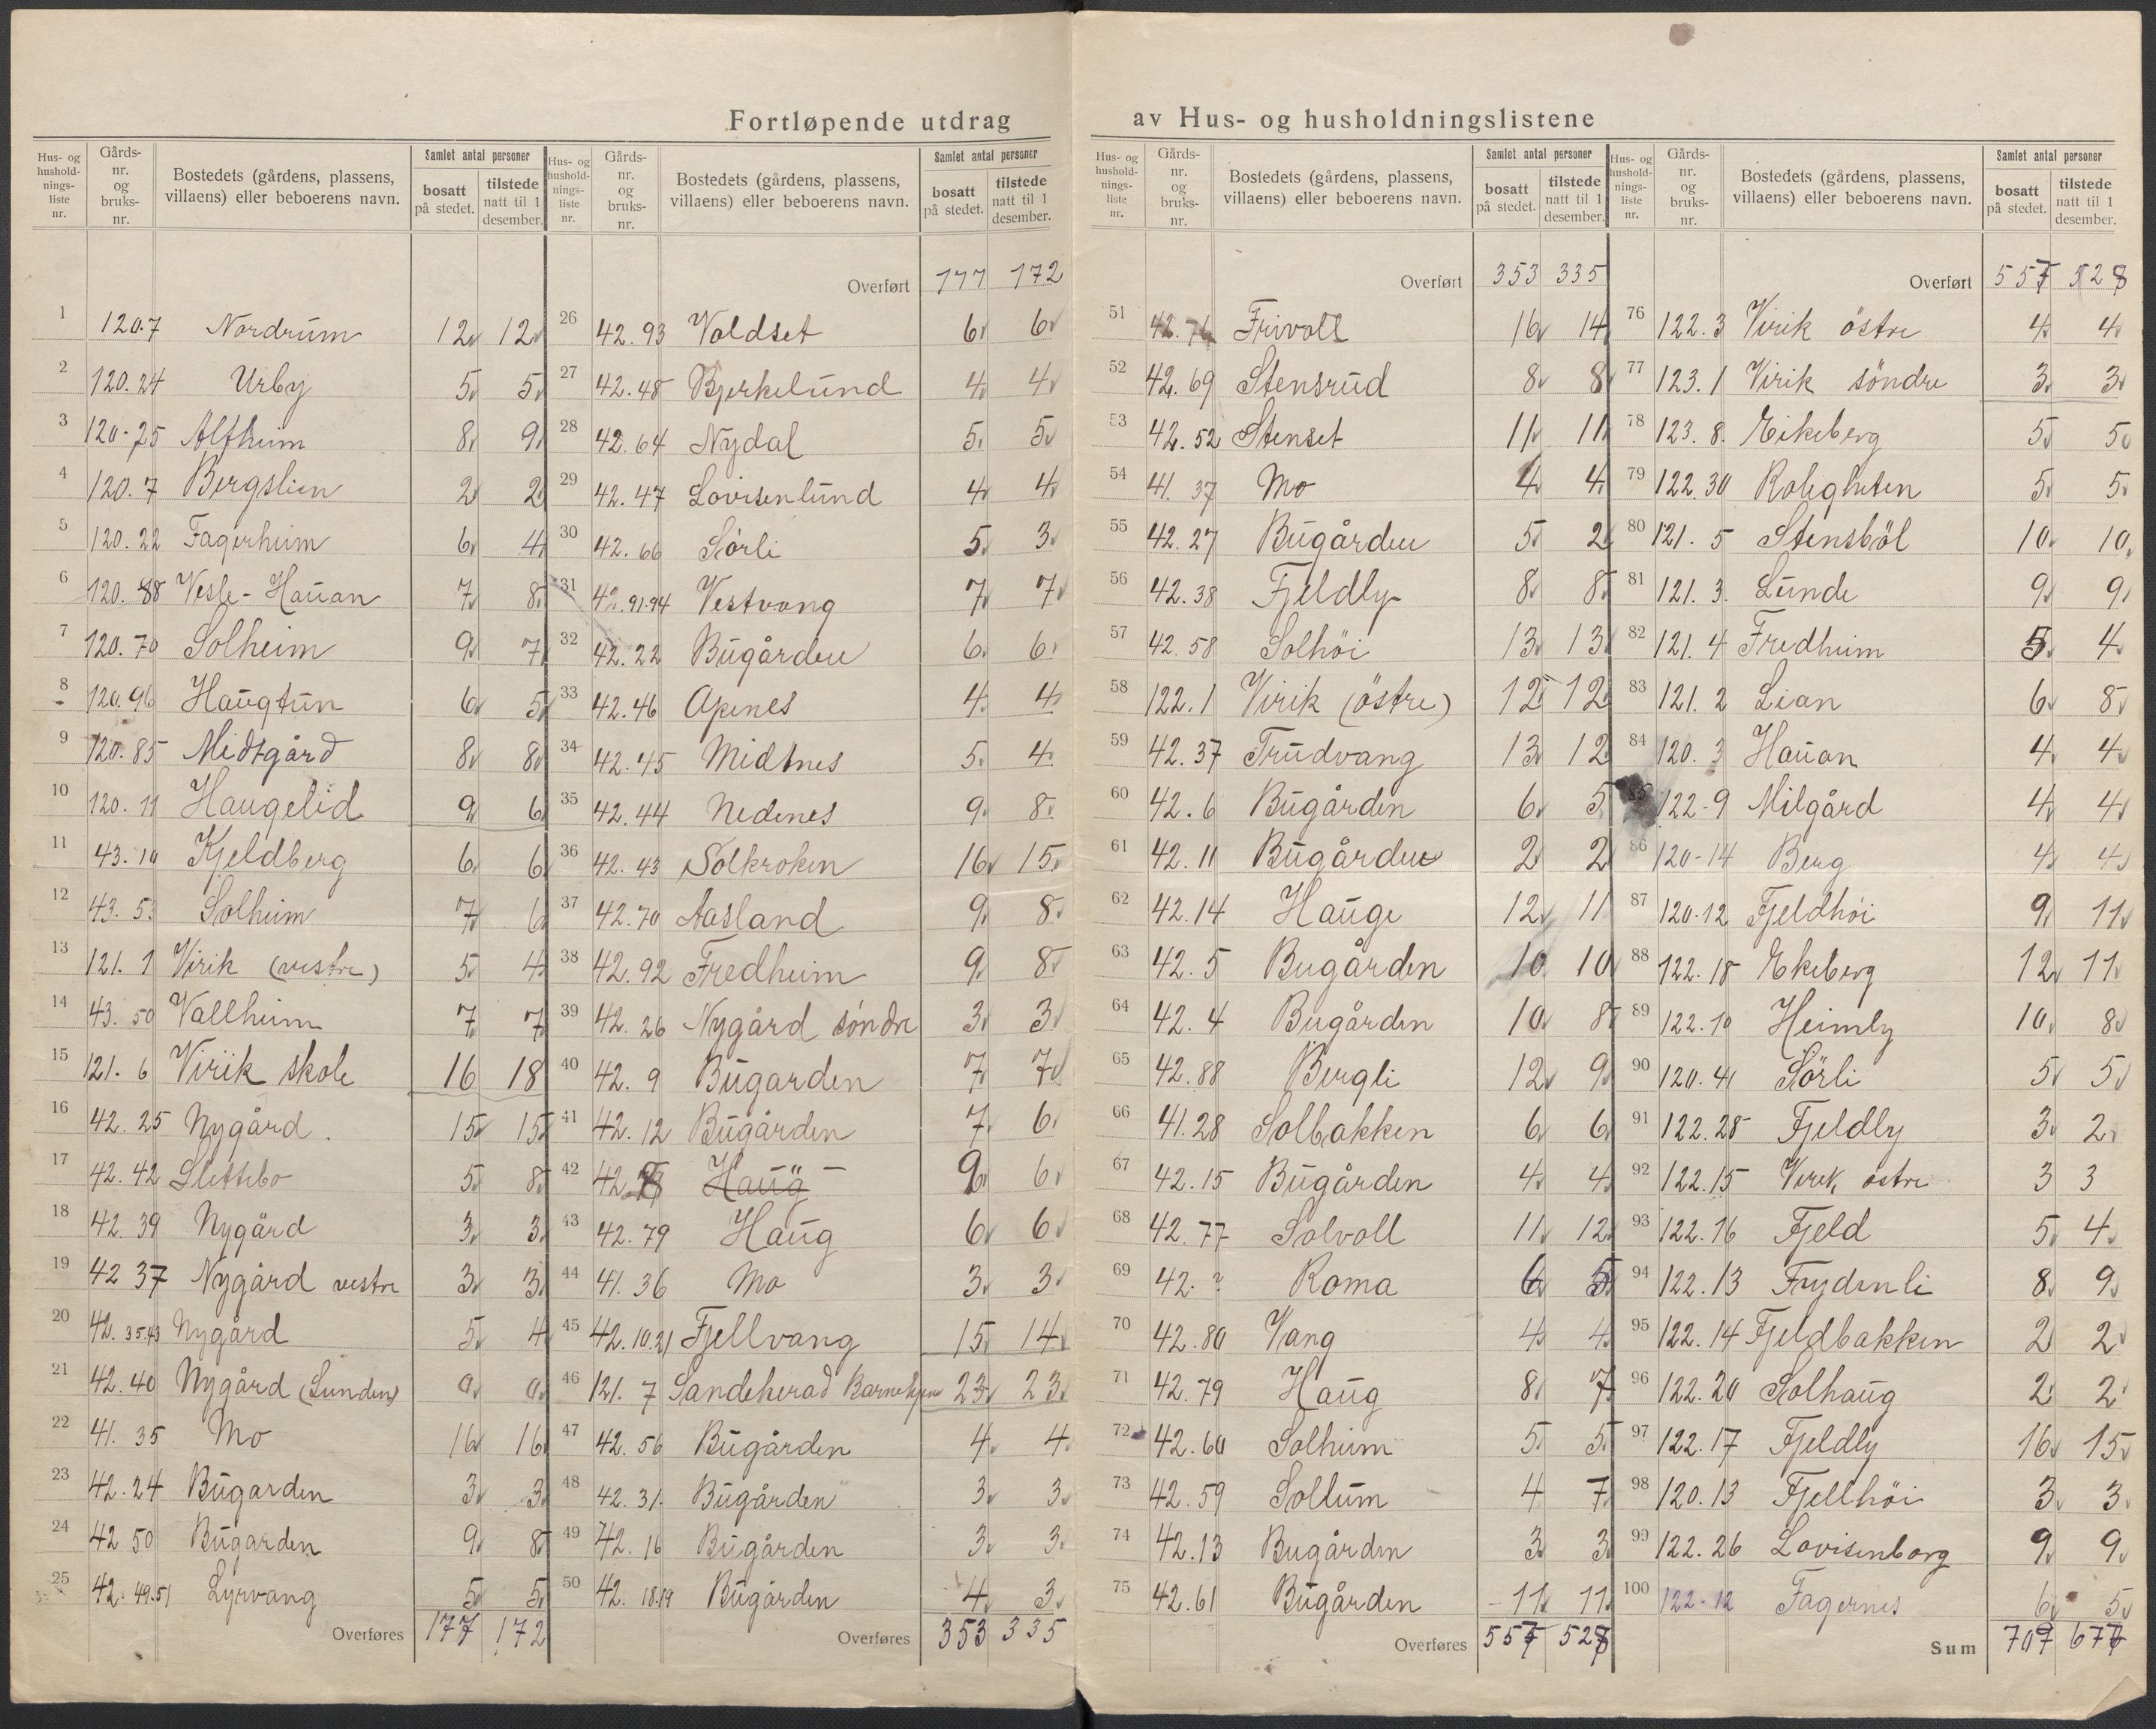 Fortløpende utdrag av Hus- og husholdningslistene
Hus- og hushold-nings-liste nr. | Gårds-nr. og bruks-nr. | Bostedets (gårdens, plassens, villaens) eller beboerens navn. | Samlet antal personer | bosatt på stedet. | tilstede natt til 1 desember.
1 120.7 Nordrum 12 12
2 120.24 Urby 5 5
3 120-25 Alfheim 8 9
4 120.7 Bergslien 2 2
5 120.22 Fagerheim 6 4
6 120.88 Vesle-Hauan 7 8
7 120.70 Solheim 9 7
8 120.96 Haugtun 6 5
9 120.85 Midtgård 8 8
10 120.11 Haugelid 9 6
11 43.10 Kjeldberg 6 6
12 43.53 Solheim 7 6
13 121.1 Virik (vestre) 5 4
14 43.50 Vallheim 7 7
15 121.6 Virik skole 16 18
16 42.25 Nygård. 15 15
17 42.42 Slettebo 5 8
18 42.39 Nygård 3 3
19 42 37 Nygård vestre 3 3
20 42.35.43 Nygård 5 4
21 42.40 Nygård (Lunden) 0 0
22 41.35 Mo 16 16
23 42.24 Bugarden 3 3
24 42 50 Bugarden 9 8
25 42.49.51 Lyrvang 5 5
Overføres 177 172
Hus- og hushold-nings-liste nr. | Gårds-nr. og bruks-nr. | Bostedets (gårdens, plassens, villaens) eller beboerens navn. | Samlet antal personer | bosatt på stedet. | tilstede natt til 1 desember.
Overført 177 172
26 42.93 Voldset 6 6
27 42.48 Bjerkelund 4 4
28 42.64 Nydal 5 5
29 42.47 Lovisenlund 4 4
30 42.66 Sørli 5 3
31 42.91.94 Vestvang 7 7
32 42.22 Bugården 6 6
33 42.46 Apenes 4 4
34 42.45 Midtnes 5 4
35 42.44 Nedenes 9 8
36 42.43 Solkroken 16 15
37 42.70 Aasland 9 8
38 42.92 Fredheim 9 8
39 42.26 Nygård søndre 3 3
40 42.9 Bugarden 7 7
41 42.12 Bugården 7 6
42 42.8 Haug 9 6
43 42.79 Haug 6 6
44 41.36 Mo 3 3
45 42.10.21 Fjellvang 15 14
46 121.7 Sandeherad Barnehjem 23 23
47 42.56 Bugården 4 4
48 42.31. Bugården 3 3
49 42.16 Bugården 3 3
50 42.18.19 Bugården 4 3
Overføres 353 335
Hus- og hushold-nings-liste nr. | Gårds-nr. og bruks-nr. | Bostedets (gårdens, plassens, villaens) eller beboerens navn. | Samlet antal personer | bosatt på stedet. | tilstede natt til 1 desember.
Overført 353 335
51 42.76 Frivoll 16 14
52 42.69 Stensrud 8 8
53 42.52 Stenset 11 11
54 41 37 Mo 4 4
55 42.27 Bugården 5 2
56 42.38 Fjeldly 8 8
57 42.58 Solhöi 13 13
58 122.1 Virik (östre) 12 12
59 42.37 Trudvang 13 12
60 42.6 Bugården 6 5
61 42.11 Bugården 2 2
62 42.14 Hauge 12 11
63 42.5 Bugården 10 10
64 42.4 Bugården 10 8
65 42.88 Bergli 12 9
66 41.28 Solbakken 6 6
67 42.15 Bugården 4 4
68 42.77 Solvoll 11 12
69 42.? Roma 6 5
70 42.80 Vang 4 4
71 42.79 Haug 8 7
72 42.60 Solheim 5 5
73 42.59 Sollum 4 7
74 42.13 Bugården 3 3
75 42.61 Bugården 11 11
Overføres 557 528
Hus- og hushold-nings-liste nr. | Gårds-nr. og bruks-nr. | Bostedets (gårdens, plassens, villaens) eller beboerens navn. | Samlet antal personer | bosatt på stedet. | tilstede natt til 1 desember.
Overført 557 528
76 122.3 Virik östre 4 4
77 123.1 Virik söndre 3 3
78 123.8. Eikeberg 5 5
79 122.30 Roligheten 5 5
80 121.5 Stensböl 10 10
81 121.3. Lunde 9 9
82 121.4 Fredheim 5 4
83 121.2 Lian 6 8
84 120.3 Hauan 4 4
85 122-9 Milgård 4 4
86 120-14 Berg 4 4
87 120-12 Fjeldhöi 9 11
88 122.18 Ekeberg 12 11
89 122.10 Heimly 10 8
90 120.41 Sörli 5 5
91 122.28 Fjeldly 3 2
92 122.15 Virik östre 3 3
93 122.16 Fjeld 5 4
94 122.13 Frydenli 8 9
95 122.14 Fjeldbakken 2 2
96 122.20 Solhaug 2 2
97 122.17 Fjeldly 16 15
98 120.13 Fjellhöi 3 3
99 122.26 Lovisenborg 9 9
100 122-12 Fagernes 6 5
Sum 707 677